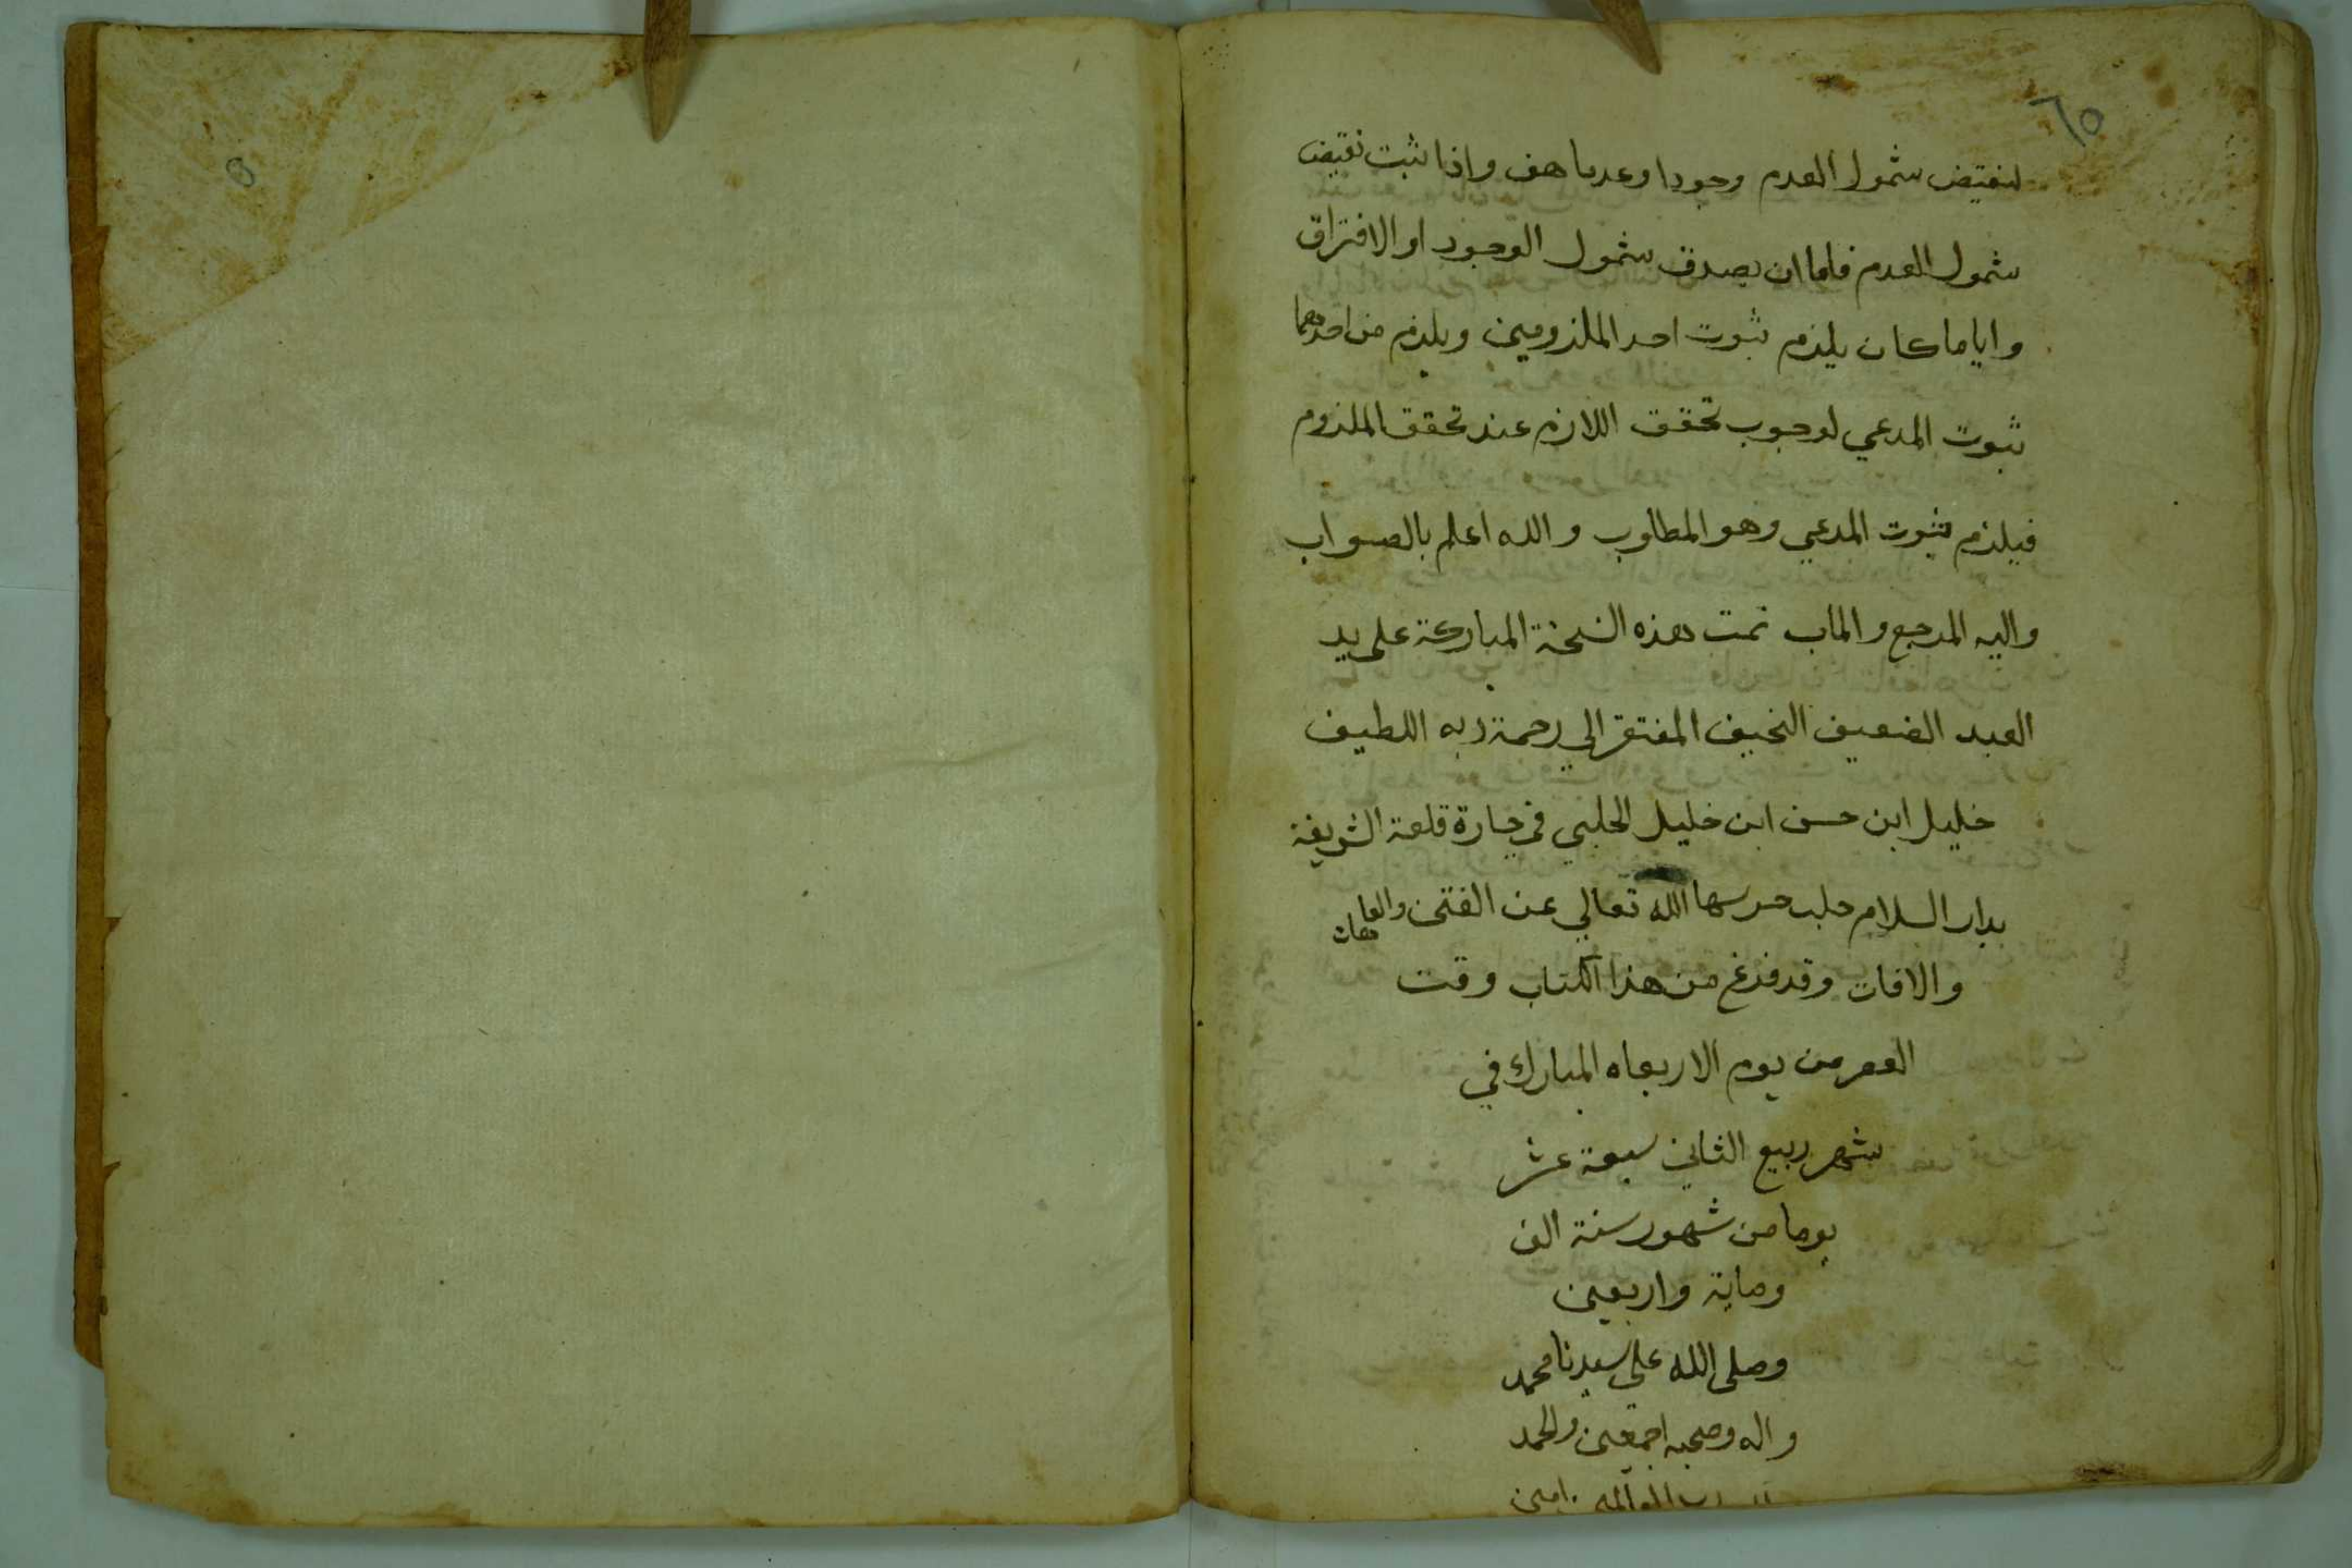 ٦٥
لنقيض شمول العدم وجودا وعدما هف واذا ثبت نقيض
شمول العدم فاما ان يصدق شمول الوجود او الافتراق
واياما كان يلزم ثبوت احد الملزومين ويلزم من احدهما
ثبوت المدعي لوجوب تحقق اللازم عند تحقق الملزوم
فيلزم ثبوت المدعي وهو المطلوب والله اعلم بالصواب
واليه المرجع والماب تمت هذه النسخة المباركة على يد
العبد الضعيف النحيف المفتقر الي رحمة ربه اللطيف
خليل ابن حسن ابن خليل الحلبي في حارة قلعة الشريفة
بدار السلام حلب حرسها الله تعالي عن الفتن والعاهات
والافات وقد فرغ من هذا الكتاب وقت
العصر من يوم الاربعاء المبارك في
شهر ربيع الثاني سبعة عشر
يوما من شهور سنة الف
وماية واربعين
وصلى الله على سيدنا محمد
واله وصحبه اجمعين والحمد
رب العالمين امين